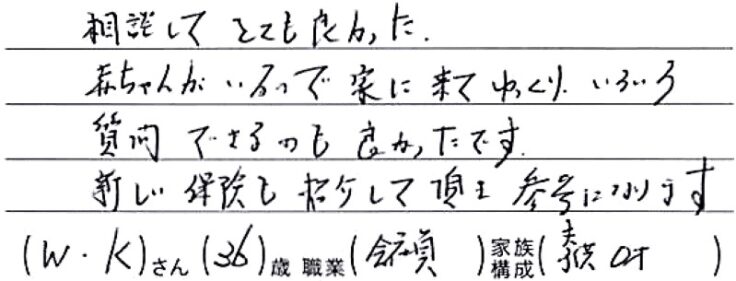 相談してとても良かった.
赤ちゃんがいるので家に来てゆっくりいろいろ
質問できるのも良かったです.
新しい保険も紹介して頂き参考になります
(W・K)さん(36)歳 職業(会社員)家族構成(夫 子供 0才)